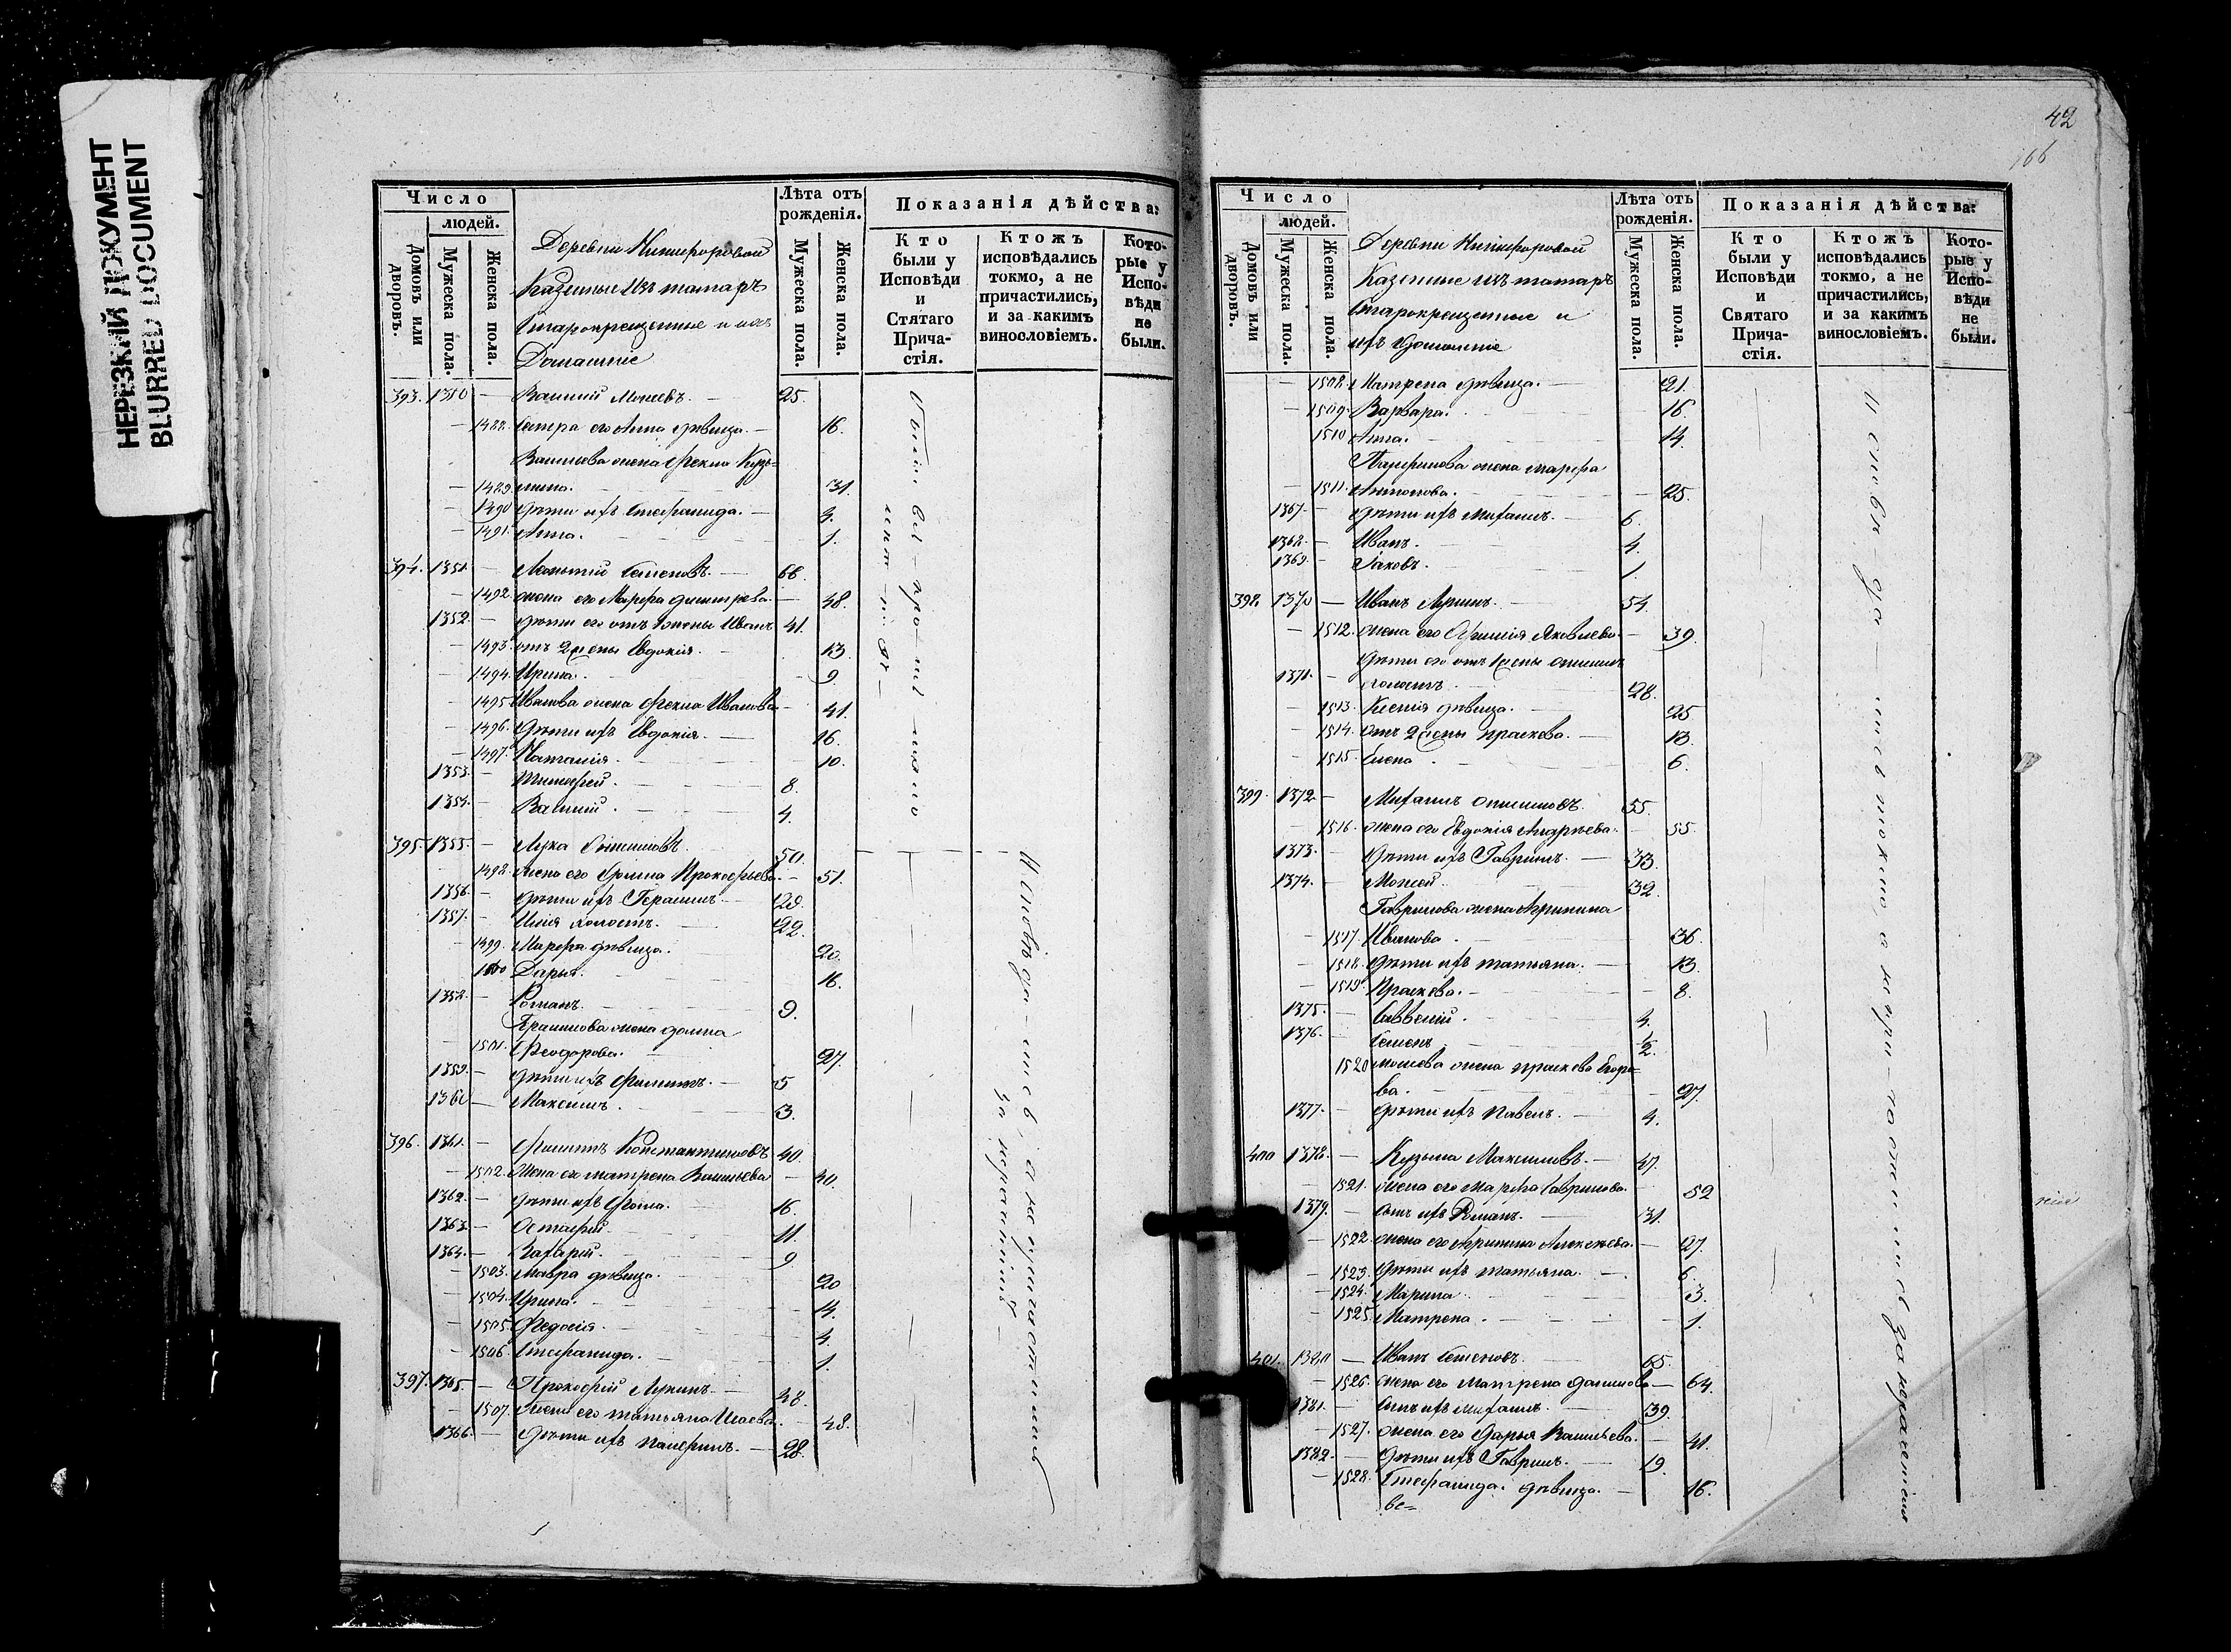 НЕРЕЗКИЙ ДОКУМЕНТ
BLURRED DOCUMENT
Число
людей.
Домовъ или дворовъ.
Мужеска пола.
Женска пола.
Деревни Никифоровой
Казенные изъ татаръ
Старокрещенные и ихъ
Домашніе
Лѣта отъ рожденія.
Мужеска пола.
Женска пола.
Показанія дѣйства:
Кто были у Исповѣди и Стятаго Причастія.
Ктожъ исповѣдались токмо, а не причастились, и за какимъ винословіемъ.
Которые у Исповѣди не были.
393. 1350 — Василій Моисеевъ. 25.
— 1488. Сестра его Анна дѣвица. — 16.
Васильева жена Фекла Кузь=
— 1489 мина. 31.
— 1490 дѣти ихъ Стефанида. — 3.
— 1491. Анна. 1.
394. 1351. — Леонтій Семеновъ. — 66.
— 1492 жена его Марфа Дмитрева. — 48.
1352. — дѣти его отъ 1 жены Иванъ 41.
— 1493. отъ 2 жены Евдокія. 13.
— 1494. Ирина. 9.
— 1495 Иванова жена Фекла Иванова — 41.
— 1496. Дѣти ихъ Евдокія. — 16.
— 1497. Наталія. 10.
1353. — Тимофей. 8.
1354. — Василій. 4.
395. 1355. — Лука 50.
— 1498. жена его Прокофьева. — 51.
1356. — дѣти ихъ Герасимъ. 29.
1357. — Илія холостъ. 22.
— 1499. Марфа дѣвица. 20.
— 1500 Дарья. 16.
1358. — Романъ. 9.
жена
— 1501. Ѳеодорова. 27.
1359. — дѣти ихъ Филиппъ. — 5
1360 — Максимъ. 3.
396. 1361. — Филиппъ Константиновъ 40.
— 1502. Жена его матрена Васильева — 40.
1362. — дѣти ихъ Ѳома. 16.
1363. — Астафій. 11.
1364. — Захарій. 9
— 1503. Мавра дѣвица. 20
— 1504. Ирина. 14.
— 1505. Федосія. 4.
— 1506. Стефанида. 1.
397. 1365. — Прокофій Лукинъ. 48.
— 1507. Жена его татьяна Исаева. — 48.
1366. — дѣти ихъ Панфилъ. — 28.
42
166
Число
людей.
Домовъ или дворовъ.
Мужеска пола.
Женска пола.
Деревни Никифоровой
Казенные изъ татаръ
Старокрещенные и
ихъ домашніе
Лѣта отъ рожденія.
Мужеска пола.
Женска пола.
Показанія дѣйства:
Кто были у Исповѣди и Святаго Причастія.
Ктожъ исповѣдались токмо, а не причастились, и за какимъ винословіемъ.
Которые у Исповѣди не были.
— 1508. Матрена дѣвица. — 21.
— 1509. Варвара. 16.
1510 Анна. 14.
Панфилова жена марфа
— 1511. Антонова. — 25.
1367. — дѣти ихъ Михаилъ. — 6.
1368. — Иванъ. 4.
1369. — Іаковъ. 1.
398. 1370 — Иванъ Лукинъ. 54.
— 1512. жена его Яковлева. — 39.
1371. — холостъ. 28.
— 1513. Ксенія дѣвица. — 25
— 1514. Отъ 2 жены праскева. — 13.
— 1515. Елена. 6.
399. 1372. — Михаилъ 55.
— 1516. жена его Евдокія Андрѣева. — 55.
1373. — дѣти ихъ Гаврилъ. — 33.
1374. — Моисей. 32.
Гаврилова жена Агрипина
— 1517. Иванова. 36.
— 1518. дѣти ихъ татьяна. — 13.
— 1519. Праскева. — 8.
1375. — Савелій. 4.
1376. — Семенъ. 1/2.
1520 моисеева жена праскева Егоро=
ва. 27.
1377. — дѣти ихъ Павелъ. — 4.
400 1378. — Кузьма Максимовъ. — 47.
— 1521. жена его марфа Гаврилова. 52
1379. — сынъ ихъ Романъ. — 31.
— 1522. жена его Агрипина Алексѣева. — 27.
— 1523. Дѣти ихъ татьяна. — 6.
— 1524. Марина. 3.
— 1525. Матрена. 1.
401. 1380 — Иванъ Семеновъ. 65.
— 1526. жена его Матрена Данилова — 64.
1381. — сынъ ихъ михаилъ. — 39.
— 1527. жена его Дарья Васильева. — 41.
1382. — дѣти ихъ Гаврилъ. — 19.
— 1528. Стефанида дѣвица. — 16.
ве=